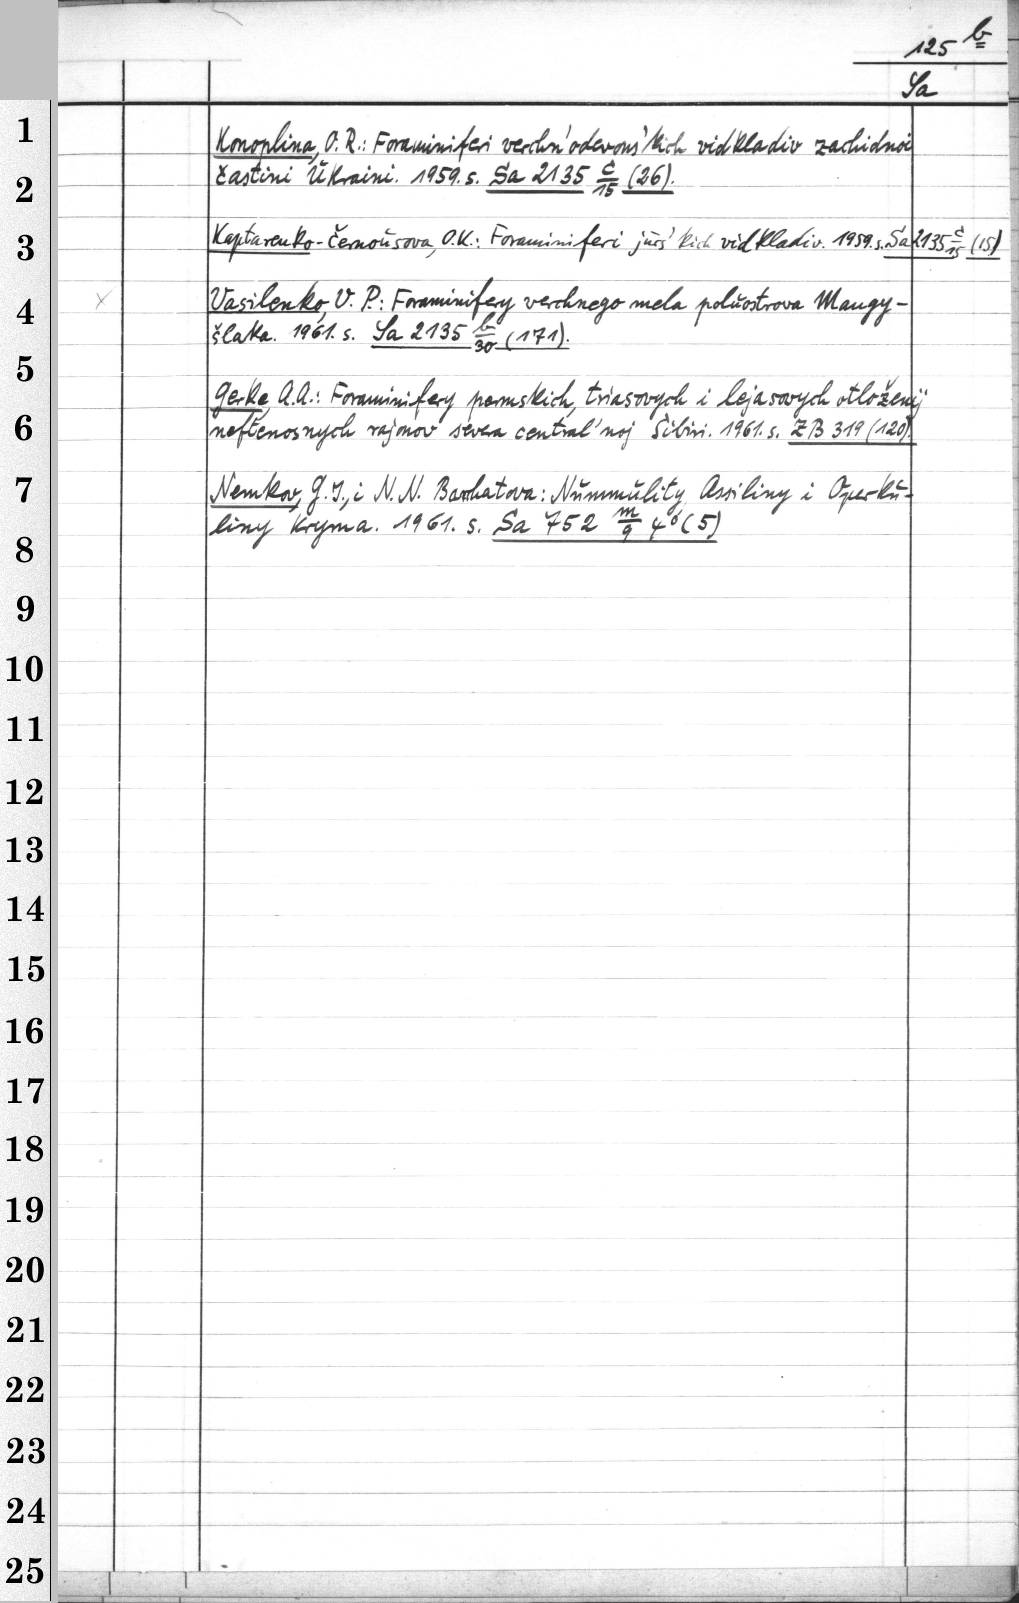 125 b
Sa
1
Konoplina, O. R.: Foraminiferi verchn'odevons'kich vidkladiv zachidnoi
2
častini Ukraini. 1959. s. Sa 2135 č/15 (26).
3
Kaptarenko-Černousova, O.K.: Foraminiferi jurs'kich vidkladiv. 1959. s. Sa 2135 č/15 (15)
4
x Vasilenko, V. P.: Foraminifery verchnego mela poluostrova Mangy-
šlaka. 1961. s. Sa 2135 b/30 (171).
5
Gerke, A.A.: Foraminifery permskich, triasovych i lejasovych otloženij
6
neftenosnych rajonov severa central'noj Sibiri. 1961. s. ZB 319 (120).
7
Nemkov, G. I., i N. N. Barchatova: Nummulity, Assiliny i Operku-
liny Kryma. 1961. s. Sa 752 m/9 4° (5)
8
9
10
11
12
13
14
15
16
17
18
19
20
21
22
23
24
25